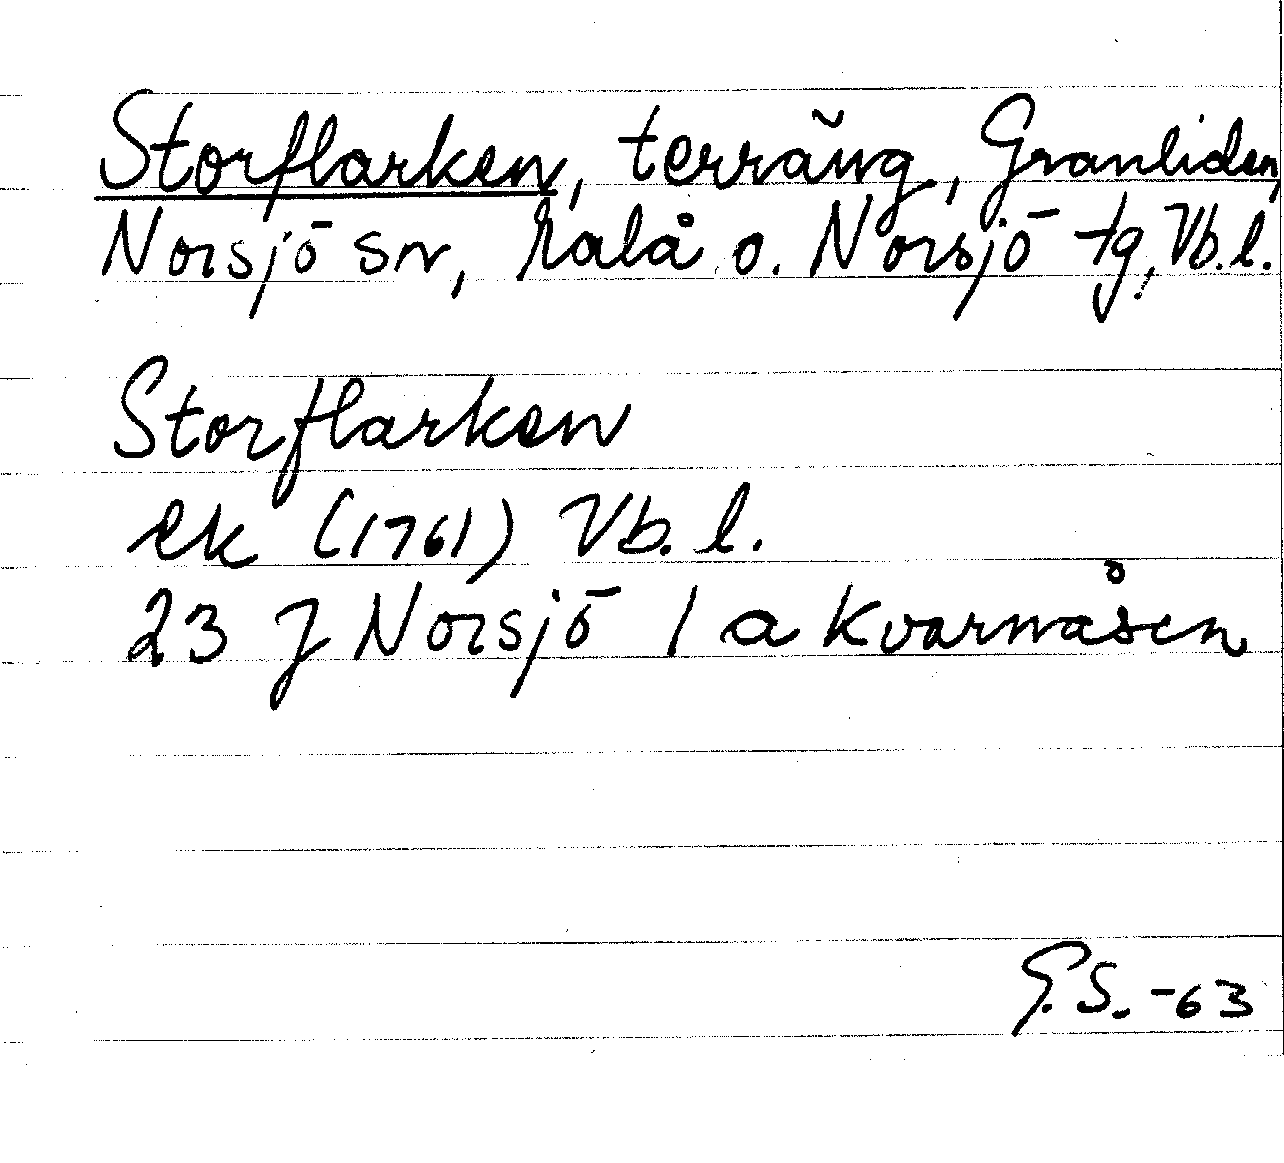 Storflarken, terräng, Granliden,
Norsjö sn, Malå o. Norsjö tg, Vb. l.
Storflarken
ek (1761) Vb. l.
23 J Norsjö 1 a Kvarnåsen
G.S. -63